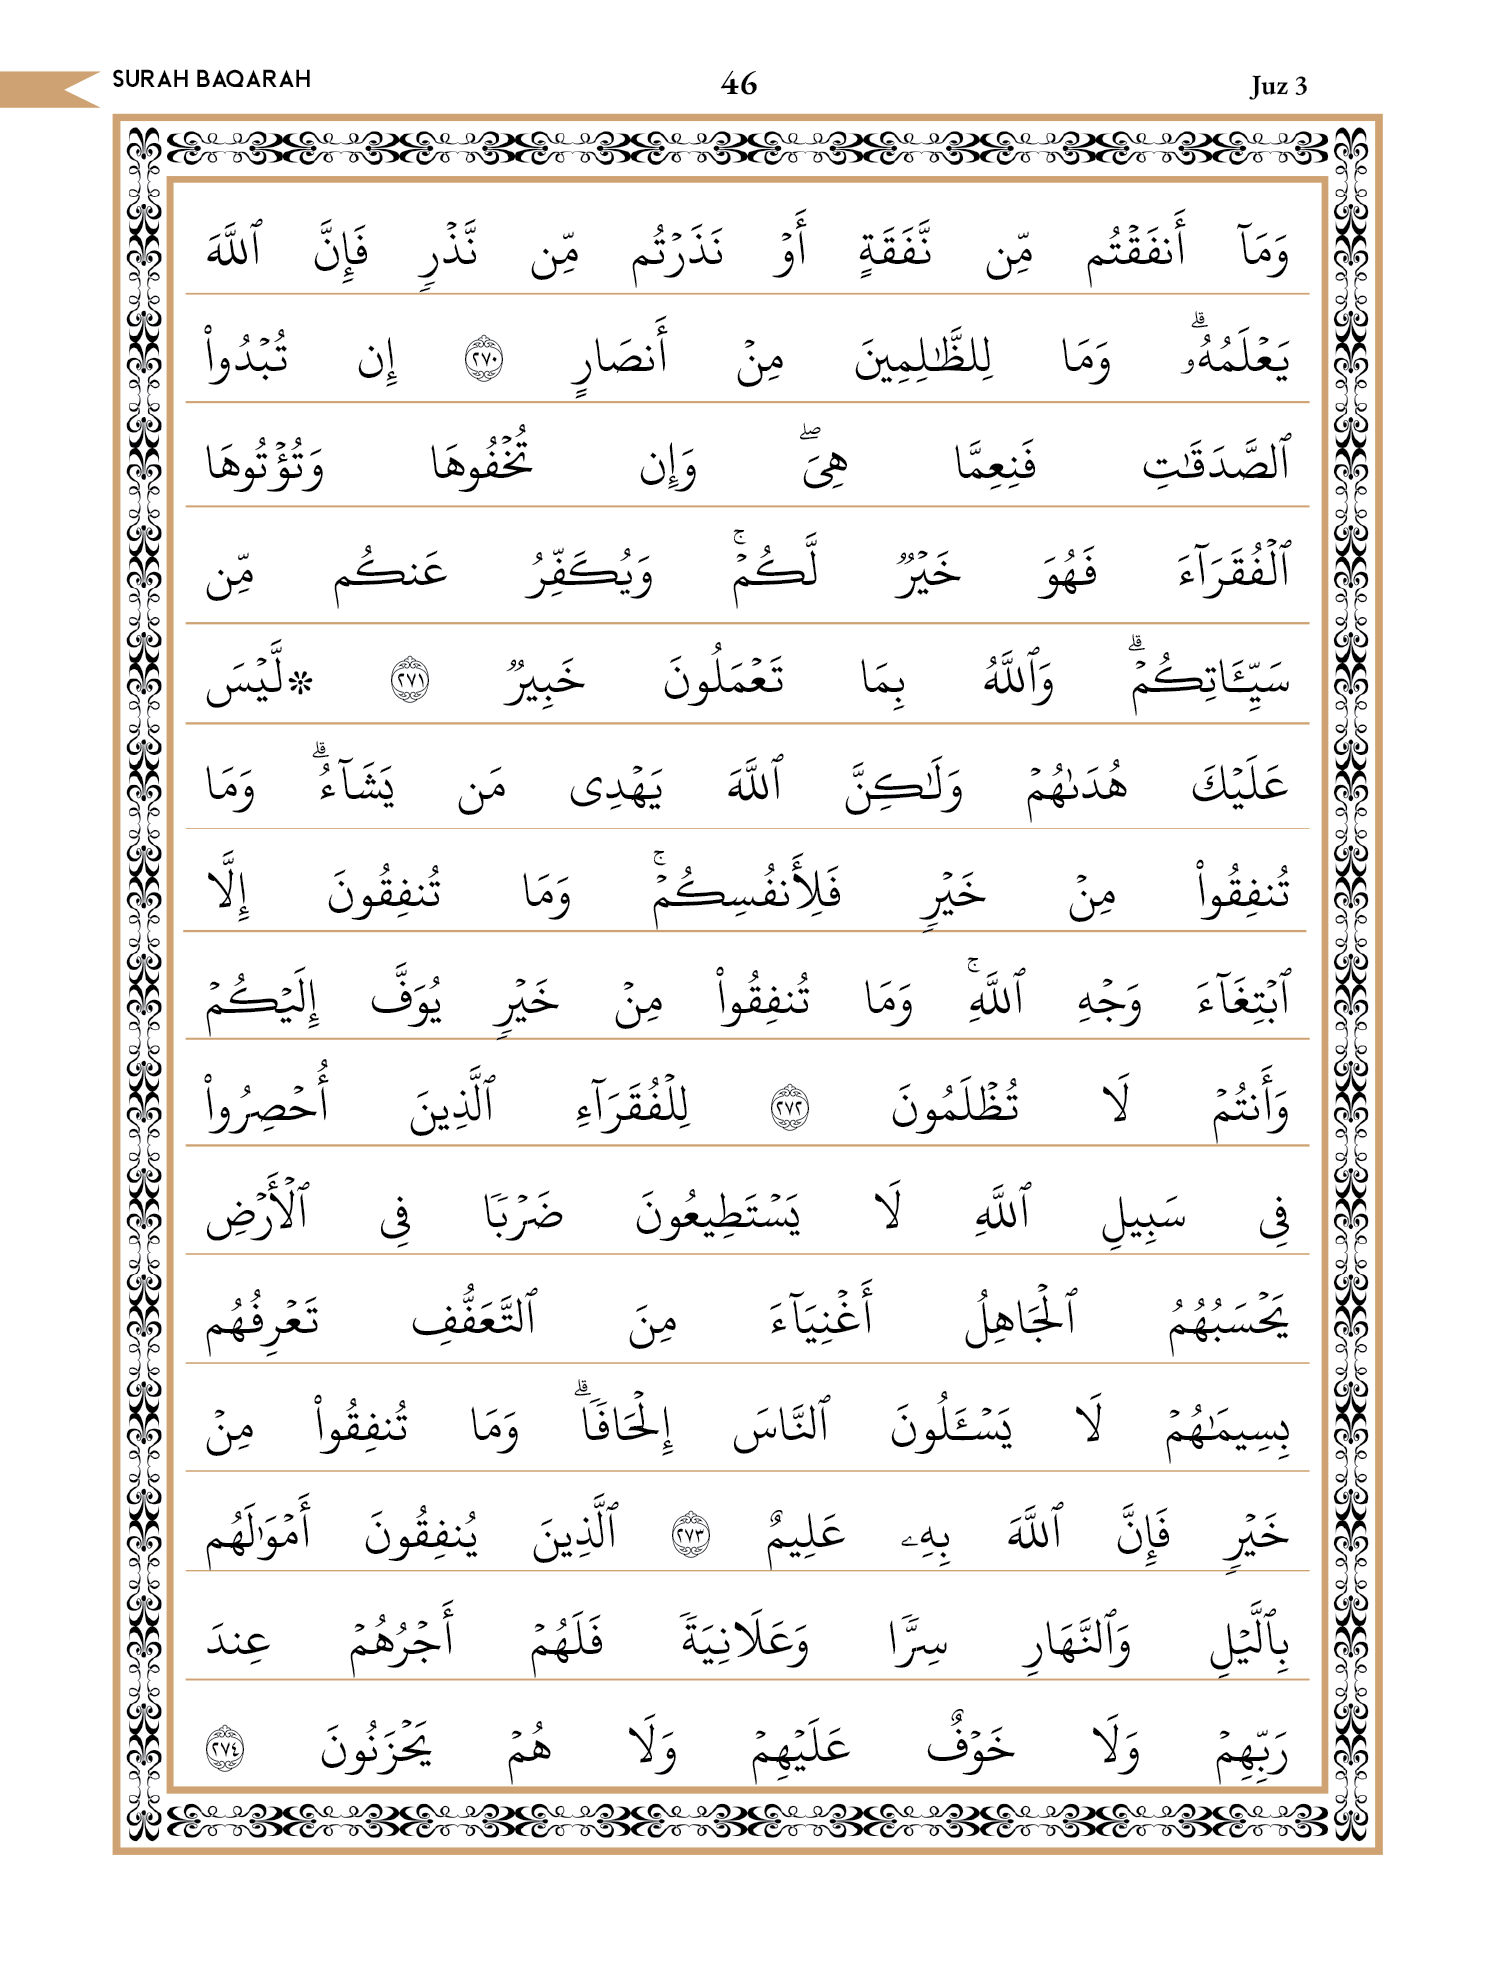 SURAH BAQARAH 46 Juz 3
وَمَآ أَنفَقۡتُم مِّن نَّفَقَةٍ أَوۡ نَذَرۡتُم مِّن نَّذۡرٖ فَإِنَّ ٱللَّهَ
يَعۡلَمُهُۥۗ وَمَا لِلظَّٰلِمِينَ مِنۡ أَنصَارٍ ٢٧٠ إِن تُبۡدُواْ
ٱلصَّدَقَٰتِ فَنِعِمَّا هِيَۖ وَإِن تُخۡفُوهَا وَتُؤۡتُوهَا
ٱلۡفُقَرَآءَ فَهُوَ خَيۡرٞ لَّكُمۡۚ وَيُكَفِّرُ عَنكُم مِّن
سَيِّـَٔاتِكُمۡۗ وَٱللَّهُ بِمَا تَعۡمَلُونَ خَبِيرٞ ٢٧١ ۞لَّيۡسَ
عَلَيۡكَ هُدَىٰهُمۡ وَلَٰكِنَّ ٱللَّهَ يَهۡدِي مَن يَشَآءُۗ وَمَا
تُنفِقُواْ مِنۡ خَيۡرٖ فَلِأَنفُسِكُمۡۚ وَمَا تُنفِقُونَ إِلَّا
ٱبۡتِغَآءَ وَجۡهِ ٱللَّهِۚ وَمَا تُنفِقُواْ مِنۡ خَيۡرٖ يُوَفَّ إِلَيۡكُمۡ
وَأَنتُمۡ لَا تُظۡلَمُونَ ٢٧٢ لِلۡفُقَرَآءِ ٱلَّذِينَ أُحۡصِرُواْ
فِي سَبِيلِ ٱللَّهِ لَا يَسۡتَطِيعُونَ ضَرۡبٗا فِي ٱلۡأَرۡضِ
يَحۡسَبُهُمُ ٱلۡجَاهِلُ أَغۡنِيَآءَ مِنَ ٱلتَّعَفُّفِ تَعۡرِفُهُم
بِسِيمَٰهُمۡ لَا يَسۡـَٔلُونَ ٱلنَّاسَ إِلۡحَافٗاۗ وَمَا تُنفِقُواْ مِنۡ
خَيۡرٖ فَإِنَّ ٱللَّهَ بِهِۦ عَلِيمٌ ٢٧٣ ٱلَّذِينَ يُنفِقُونَ أَمۡوَٰلَهُم
بِٱلَّيۡلِ وَٱلنَّهَارِ سِرّٗا وَعَلَانِيَةٗ فَلَهُمۡ أَجۡرُهُمۡ عِندَ
رَبِّهِمۡ وَلَا خَوۡفٌ عَلَيۡهِمۡ وَلَا هُمۡ يَحۡزَنُونَ ٢٧٤